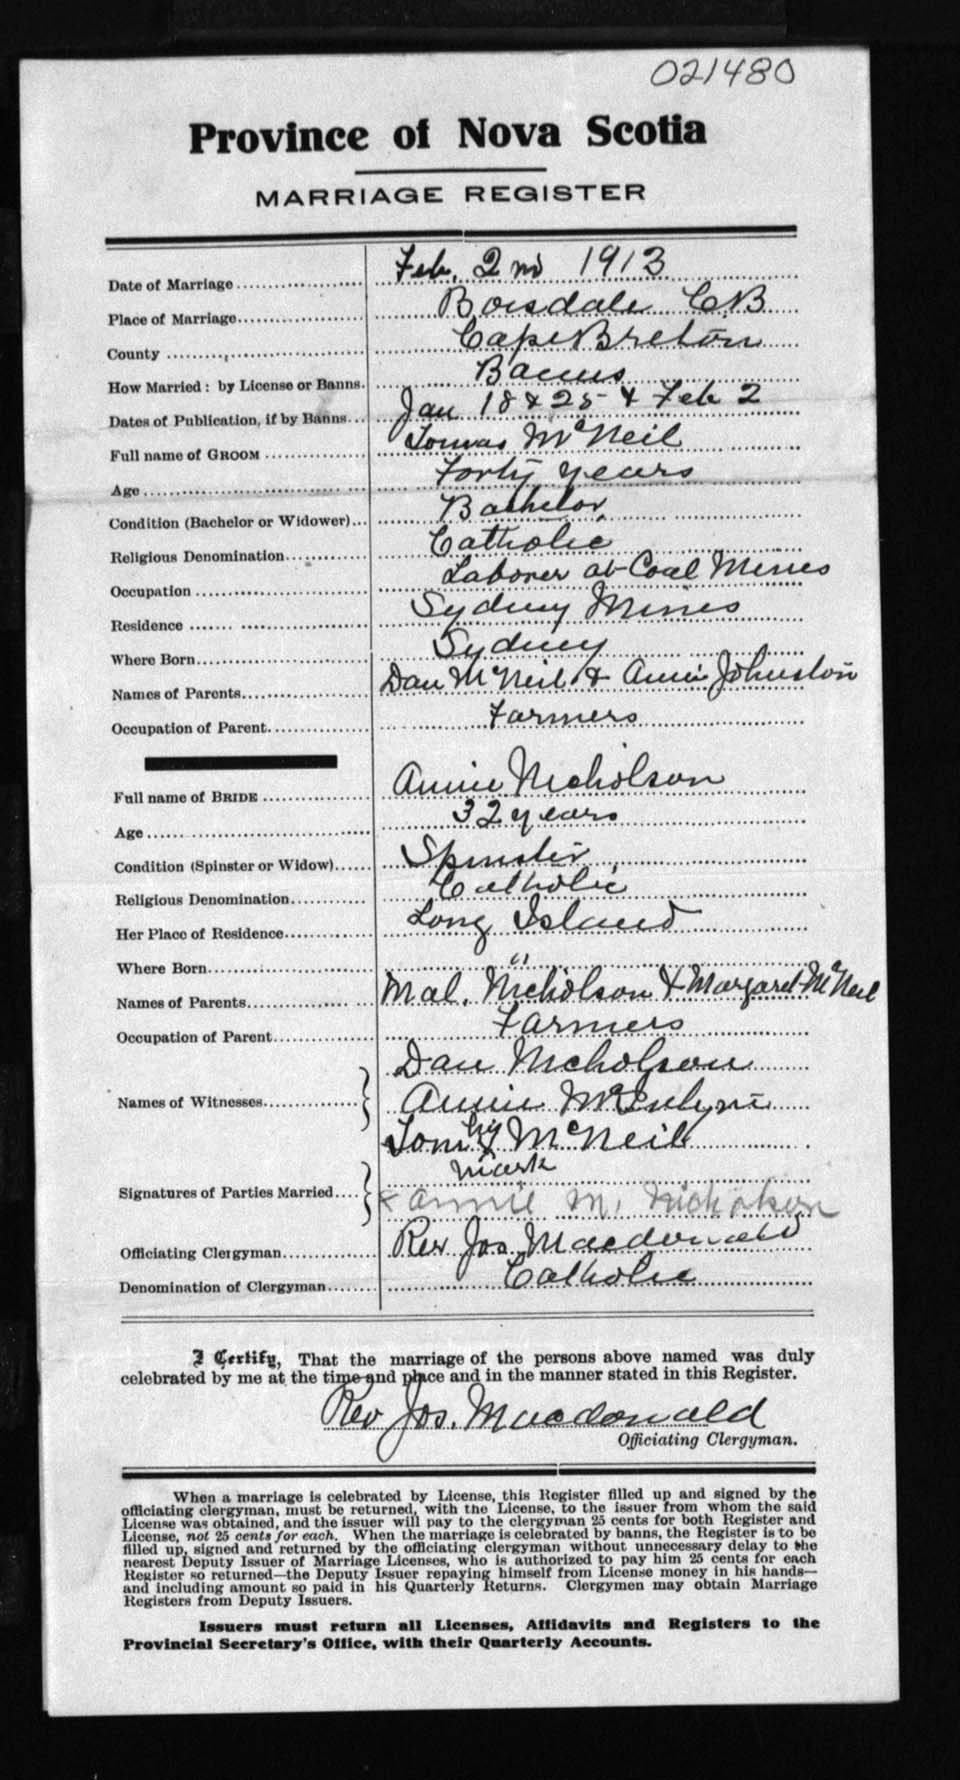 021480
Province of Nova Scotia
MARRIAGE REGISTER
Date of Marriage Feb. 2nd 1913
Place of Marriage Boisdale C.B
County Cape Breton
How Married: by License or Banns. Banns
Dates of Publication, if by Banns Jan 18 & 25 & Feb 2
Full name of GROOM Tomas McNeil
Age Forty years
Condition (Bachelor or Widower) Bachelor
Religious Denomination Catholic
Occupation Laborer at Coal Mines
Residence Sydney Mines
Where Born Sydney
Names of Parents Dan McNeil & Annie Johnston
Occupation of Parent Farmers
Full name of BRIDE Annie Nicholson
Age 32 years
Condition (Spinster or Widow) Spinster
Religious Denomination Catholic
Her Place of Residence Long Island
Where Born "
Names of Parents Mal. Nicholson & Margaret McNeil
Occupation of Parent Farmers
Names of Witnesses Dan Nicholson
Annie
Signatures of Parties Married Tom his X McNeil
mark
Annie M. Nicholson
Officiating Clergyman Rev Jos. Macdonald
Denomination of Clergyman Catholic
I Certify, That the marriage of the persons above named was duly
celebrated by me at the time and place and in the manner stated in this Register.
Rev Jos. Macdonald
Officiating Clergyman.
When a marriage is celebrated by License, this Register filled up and signed by the
officiating clergyman, must be returned, with the License, to the issuer from whom the said
License was obtained, and the issuer will pay to the clergyman 25 cents for both Register and
License, not 25 cents for each. When the marriage is celebrated by banns, the Register is to be
filled up, signed and returned by the officiating clergyman without unnecessary delay to the
nearest Deputy Issuer of Marriage Licenses, who is authorized to pay him 25 cents for each
Register so returned—the Deputy Issuer repaying himself from License money in his hands—
and including amount so paid in his Quarterly Returns. Clergymen may obtain Marriage
Registers from Deputy Issuers.
Issuers must return all Licenses, Affidavits and Registers to the
Provincial Secretary's Office, with their Quarterly Accounts.